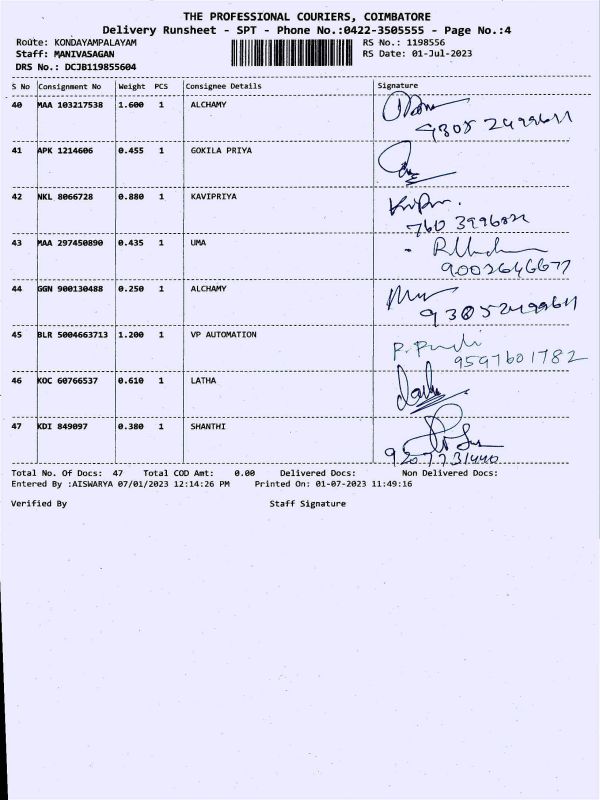 THE PROFESSIONAL COURIERS, COIMBATORE
Delivery Runsheet - SPT - Phone No.:0422-3505555 - Page No.:4
Route: KONDAYAMPALAYAM RS No.: 1198556
Staff: MANIVASAGAN RS Date: 01-Jul-2023
DRS No.: DCJB119855604
S No Consignment No Weight PCS Consignee Details Signature
40 MAA 103217538 1.600 1 ALCHAMY
41 APK 1214606 0.455 1 GOKILA PRIYA
42 NKL 8066728 0.880 1 KAVIPRIYA
43 MAA 297450890 0.435 1 UMA
9002646677
44 GGN 900130488 0.250 1 ALCHAMY
45 BLR 5004663713 1.200 1 VP AUTOMATION
9597601782
46 KOC 60766537 0.610 1 LATHA
47 KDI 849097 0.380 1 SHANTHI
Total No. Of Docs: 47 Total COD Amt: 0.00 Delivered Docs: Non Delivered Docs:
Entered By :AISWARYA 07/01/2023 12:14:26 PM Printed On: 01-07-2023 11:49:16
Verified By Staff Signature